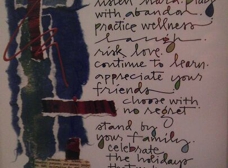 listen hard. play
with abandon.
practice wellness
laugh.
risk love.
continue to learn.
appreciate your
friends
choose with
no regret
stand by
your family.
celebrate
the holidays